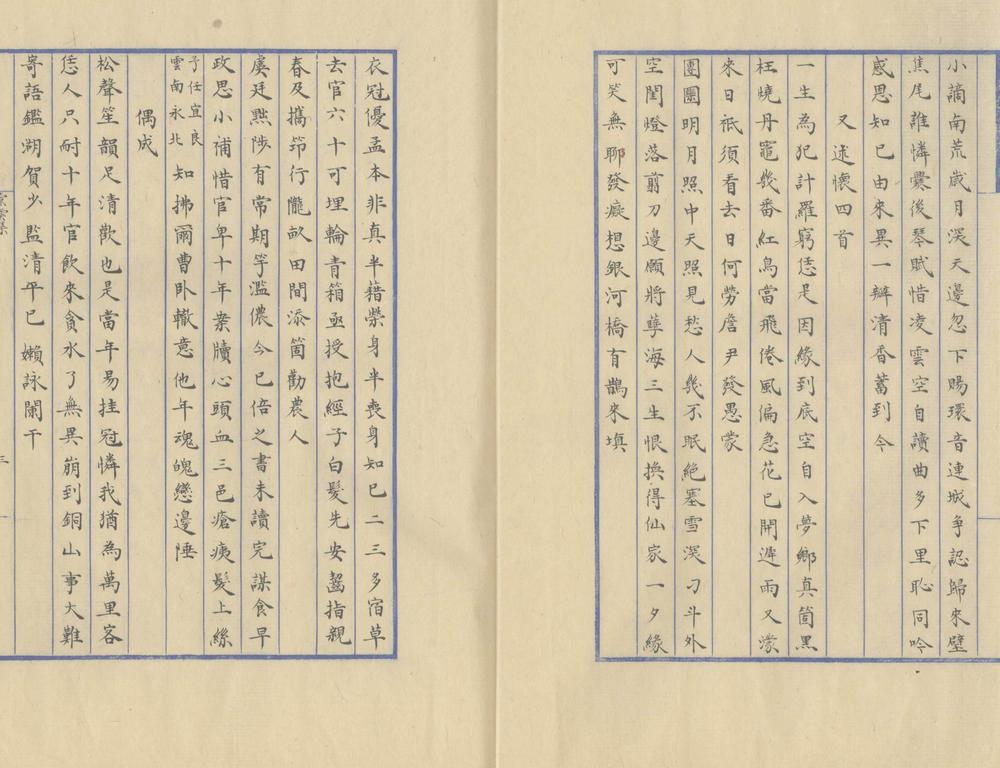 小謫南荒歲月深天邊忽下賜環音連城爭認歸來璧
焦尾誰憐爨後琴賦惜凌雲空自讀曲多下里恥同吟
感恩知己由來異一瓣清香蓄到今
又述懷四首
一生為犯計羅窮恁是因緣到底空自入夢鄉真箇黑
枉燒丹竈幾番紅鳥當飛倦風偏急花已開遲雨又濛
來日祇須看去日何勞詹尹發愚蒙
團團明月照中天照見愁人幾不眠絕塞雪深刁斗外
空閨燈落翦刀邊願將孽海三生恨換得仙家一夕緣
可笑無聊發癡想銀河橋有鵲來填
衣冠優孟本非真半藉榮身半喪身知己二三多宿草
去官六十可埋輪青箱亟授抱經子白髮先安齧指親
春及攜笻行隴畝田間添箇勸農人
虞廷黜陟有常期竽濫儂今已倍之書未讀完謀食早
政思小補惜官卑十年案牘心頭血三邑瘡痍髮上絲
予任宜良雲南永北知拂爾曹臥轍意他年魂魄戀邊陲
偶成
松聲笙韻足清歡也是當年易挂冠憐我猶為萬里客
恁人只耐十年官飲來貪水了無異崩到銅山事大難
寄語鑑湖賀少監清平已嬾詠闌干
三